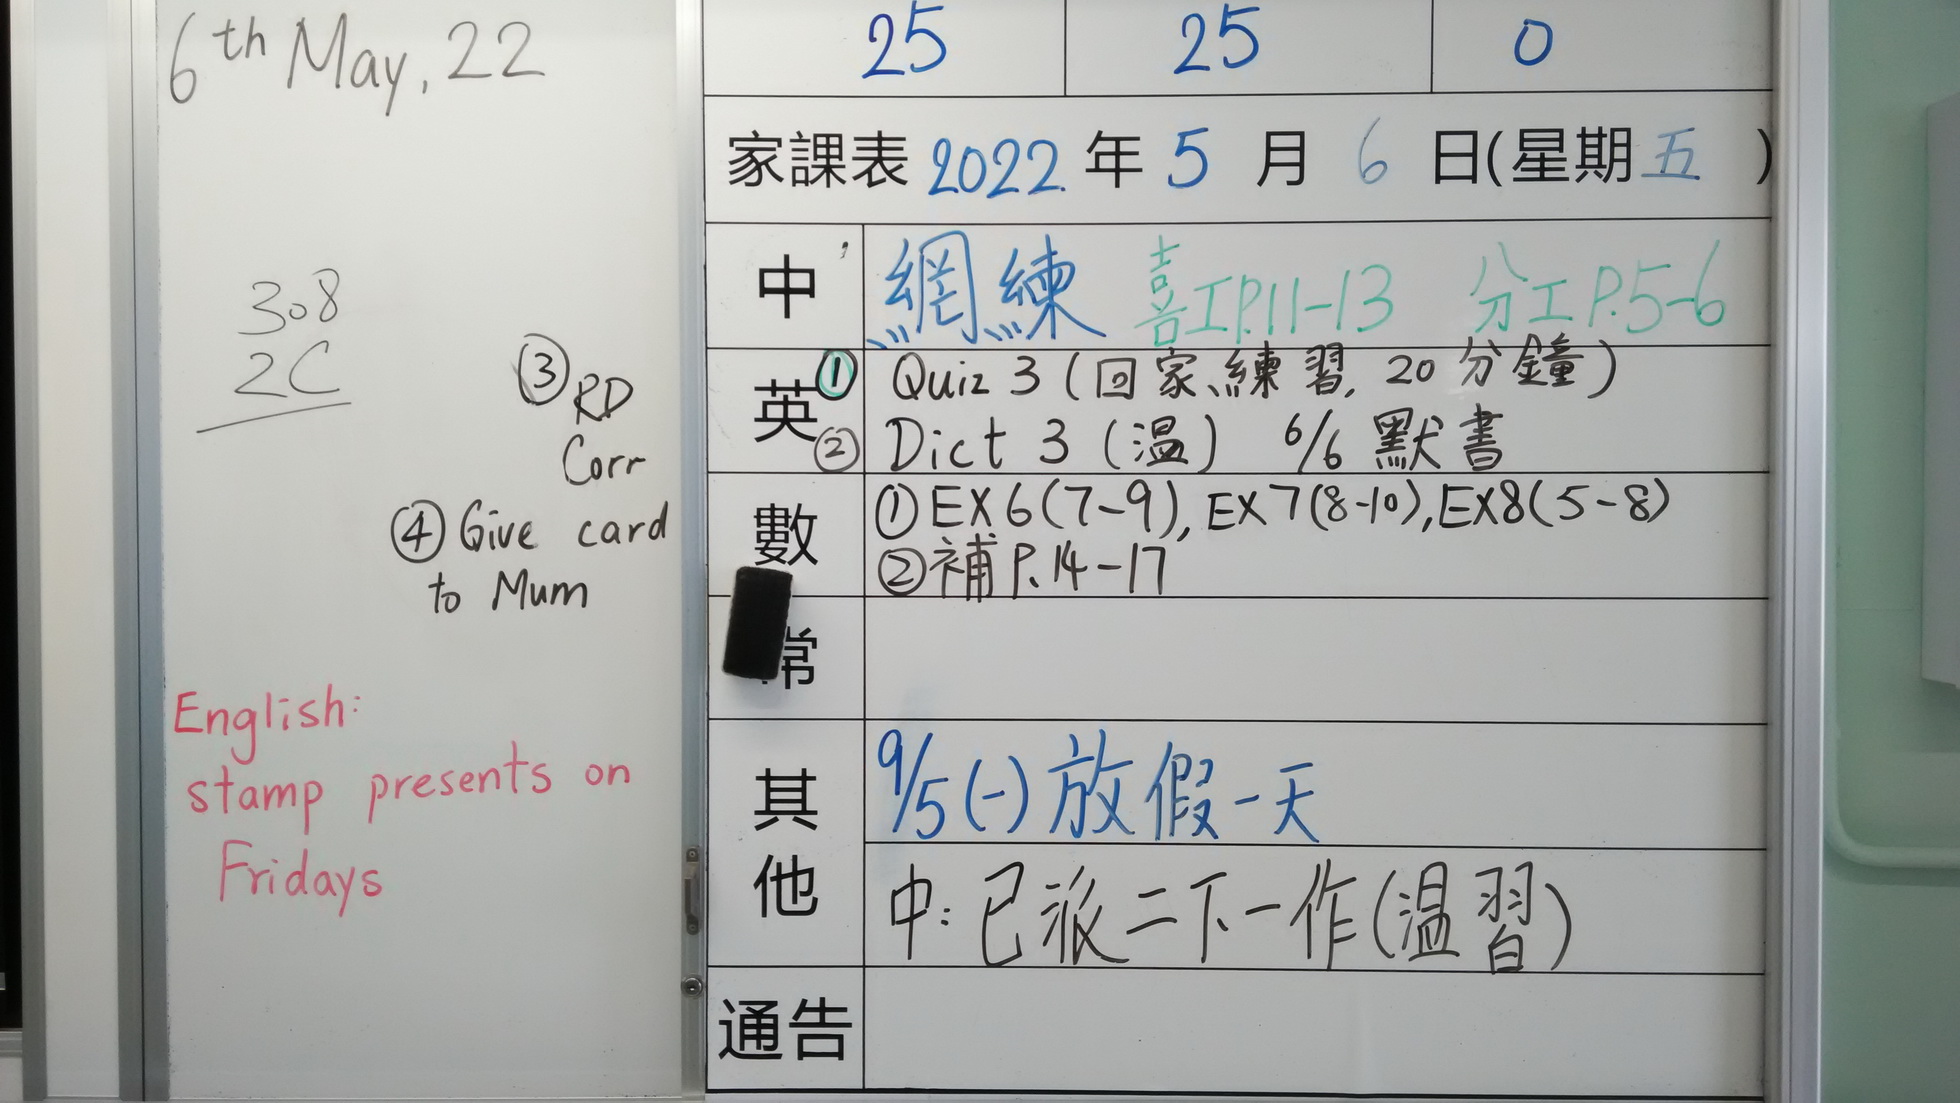 6th May, 22
308
2C
③ RD
Corr
④ Give card
to Mum
English:
stamp presents on
Fridays
25 25 0
家課表 2022 年 5 月 6 日(星期五 )
中 網練 喜工P.11-13 分工P.5-6
英 ① Quiz 3 (回家練習, 20分鐘)
② Dict 3 (溫) 6/6 默書
數 ① EX6(7-9), EX7(8-10), EX8(5-8)
② 補 P.14-17
常
其他 9/5(一)放假一天
中:已派二下一作(溫習)
通告